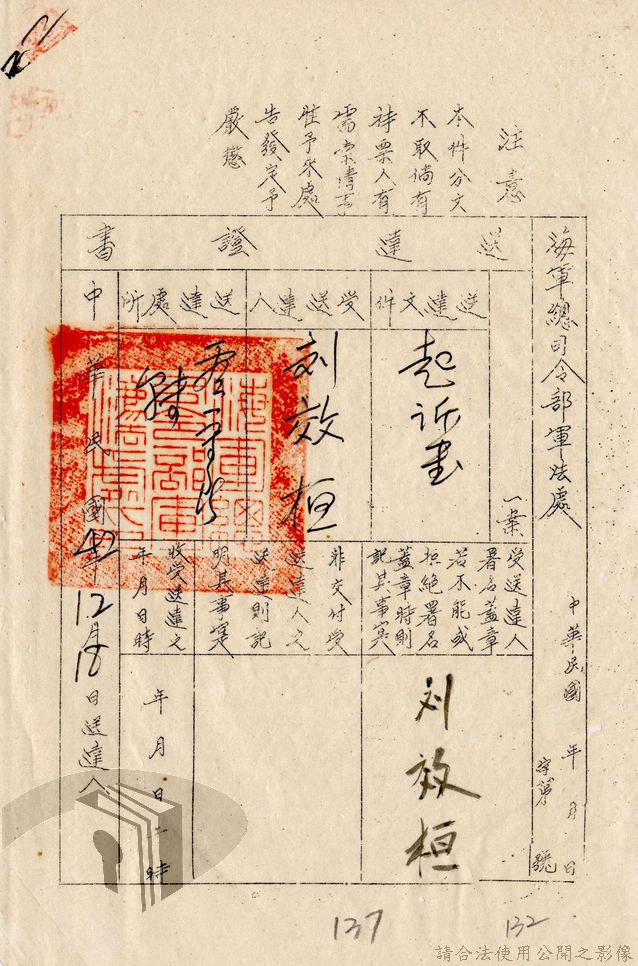 注意
本件分文
不取倘有
持票人有
需索情事
准予來處
告發定予
嚴懲
海軍總司令部軍法處
中華民國 年 月 日
字第 號
送達證書
一案
送達文件
起訴書
受送達人
刘效桓
送達處所
受送達人
署名蓋章
若不能或
拒絕署名
蓋章時則
記其事實
刘效桓
非交付受
送達人之
送達則記
明其事實
收受送達之
年月日時
年 月 日 時
中華民國42年12月18日送達人
137
132
請合法使用公開之影像